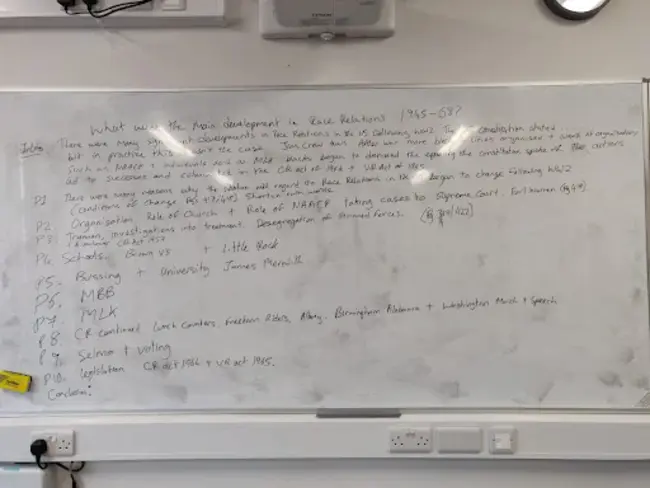 What were the Main development in Race Relations 1945-68?
Intro There were many significant developments in Race Relations in the US following WW2. The constitution stated
but in practice this wasn't the case. Jim Crow laws After war more black lives organised + work of organisations
such as NAACP + individuals such as MLK blacks began to demand the equality the constitution spoke of. Their actions
led to successes and culminated in the CR Act of 1964 + VR Act of 1965
P1 There were many reasons why the situation with regard to Race Relations in the began to change following WW2
(Conditions of change Pg 417/418) Shorten own words.
P2. Organisation Role of Church + Role of NAACP taking cases to Supreme Court. Earl Warren (Pg 419)
P3. Truman, Investigations into treatment. Desegregation of Armed Forces.
CR Act 1957
P4. Schools. Brown VS + Little Rock
P5. Bussing + University James Meredith
P6. MBB
P7. MLK
P8. CR continued Lunch Counters, Freedom Riders, Albany, Birmingham Alabama + Washington March + Speech
P9. Selma + Voting
P10. Legislation CR act 1964 + VR act 1965.
Conclusion: